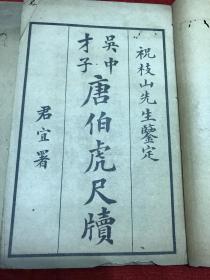 祝枝山先生鑒定
吳中才子
唐伯虎尺牘
君宜署